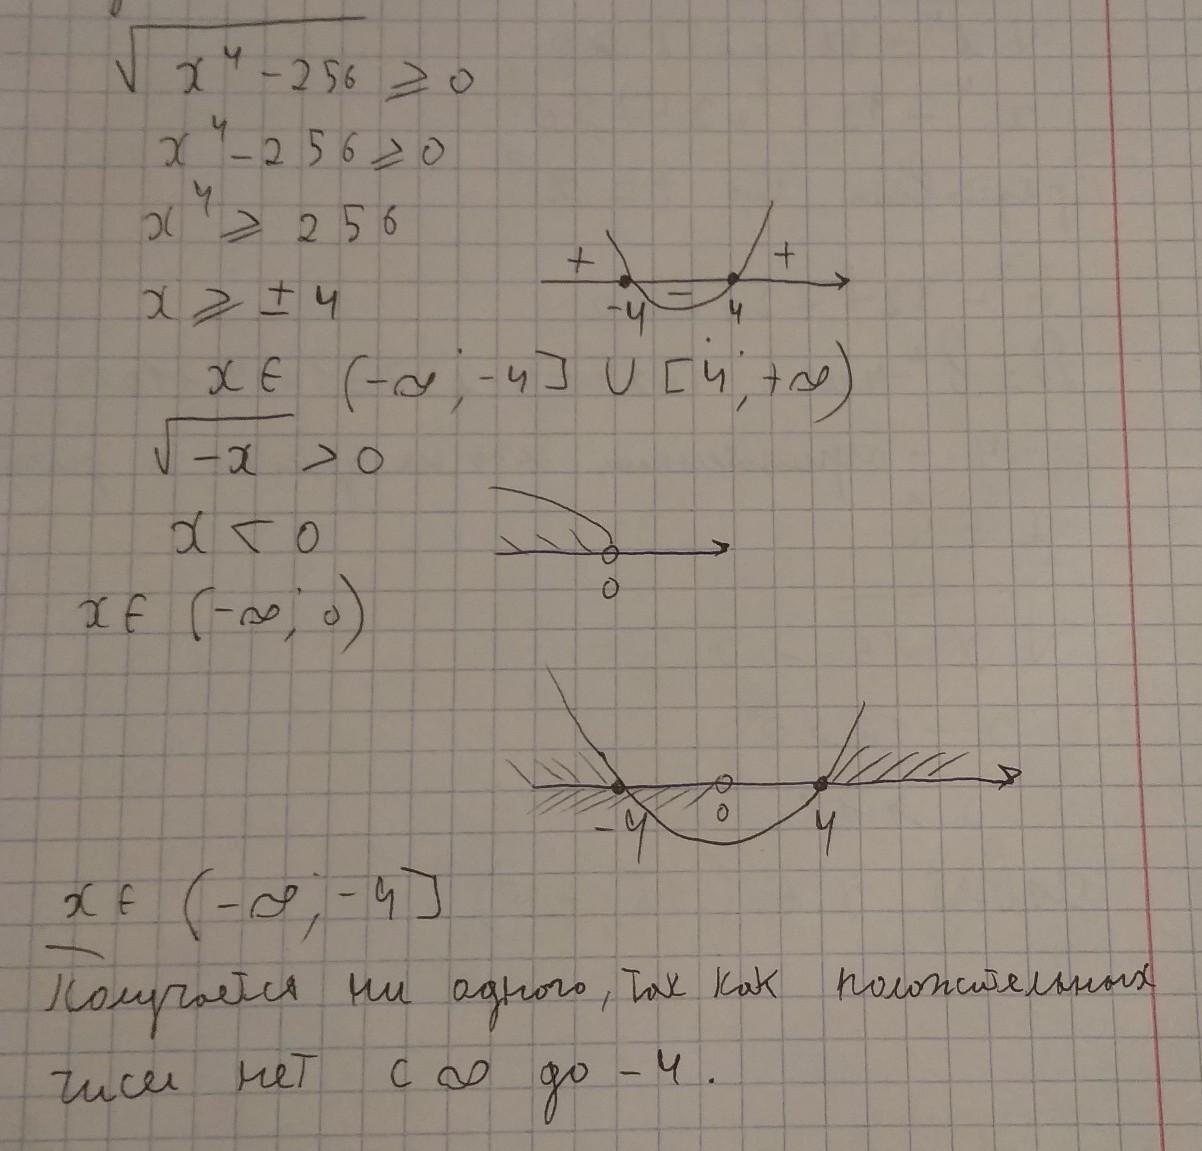 √x⁴ - 256 ⩾ 0
x⁴ - 256 ⩾ 0
x⁴ ⩾ 256
x ⩾ ± 4
+ - +
-4 4
x ∈ (-∞; -4] ∪ [4; +∞)
√-x > 0
x < 0
0
x ∈ (-∞; 0)
-4 0 4
x ∈ (-∞; -4]
Получается ни одного, так как положительных
чисел нет с ∞ до -4.